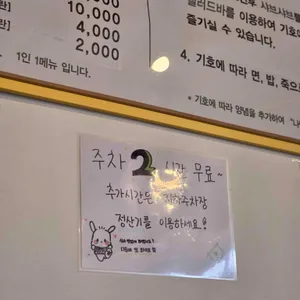 란]
10,000
란]
10,000
4,000
2,000
1인 1메뉴 입니다.
샐러드바를 이용하여 기호에
즐기실 수 있습니다.
4. 기호에 따라 면, 밥, 죽으
* 기호에 따라 양념을 추가하여
주차 2시간 무료~
추가시간은 지하주차장
정산기를 이용하세요!